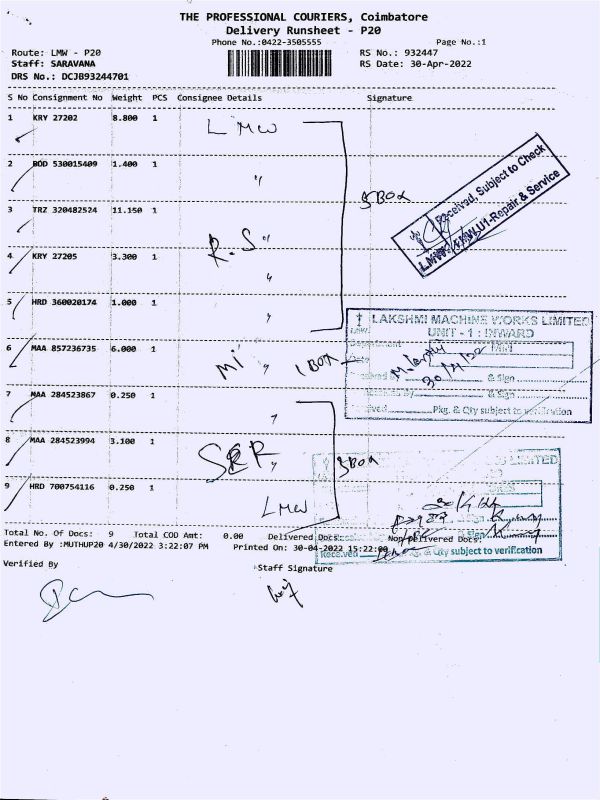 THE PROFESSIONAL COURIERS, Coimbatore
Delivery Runsheet - P20
Phone No.:0422-3505555 Page No.:1
Route: LMW - P20 RS No.: 932447
Staff: SARAVANA RS Date: 30-Apr-2022
DRS No.: DCJB93244701
S No Consignment No Weight PCS Consignee Details Signature
1 KRY 27202 8.800 1 LMW
2 BOD 530015409 1.400 1 "
5 BOX
Received, Subject to Check
LMW-U1-Repair & Service
3 TRZ 320482524 11.150 1 "
R.S
4 KRY 27205 3.300 1 "
5 HRD 360020174 1.000 1 "
LAKSHMI MACHINE WORKS LIMITED
UNIT - 1 : INWARD
6 MAA 857236735 6.000 1 Mi " 1 BOX
30/4/22
& Sign
& Sign
Pkg. & Qty subject to verification
7 MAA 284523867 0.250 1 "
8 MAA 284523994 3.100 1 SCR " 3 BOX
LIMITED
9 HRD 700754116 0.250 1 LMW
Total No. Of Docs: 9 Total COD Amt: 0.00 Delivered Docs: Non Delivered Docs:
Entered By :MUTHUP20 4/30/2022 3:22:07 PM Printed On: 30-04-2022 15:22:00
Received & Qty subject to verification
Verified By Staff Signature